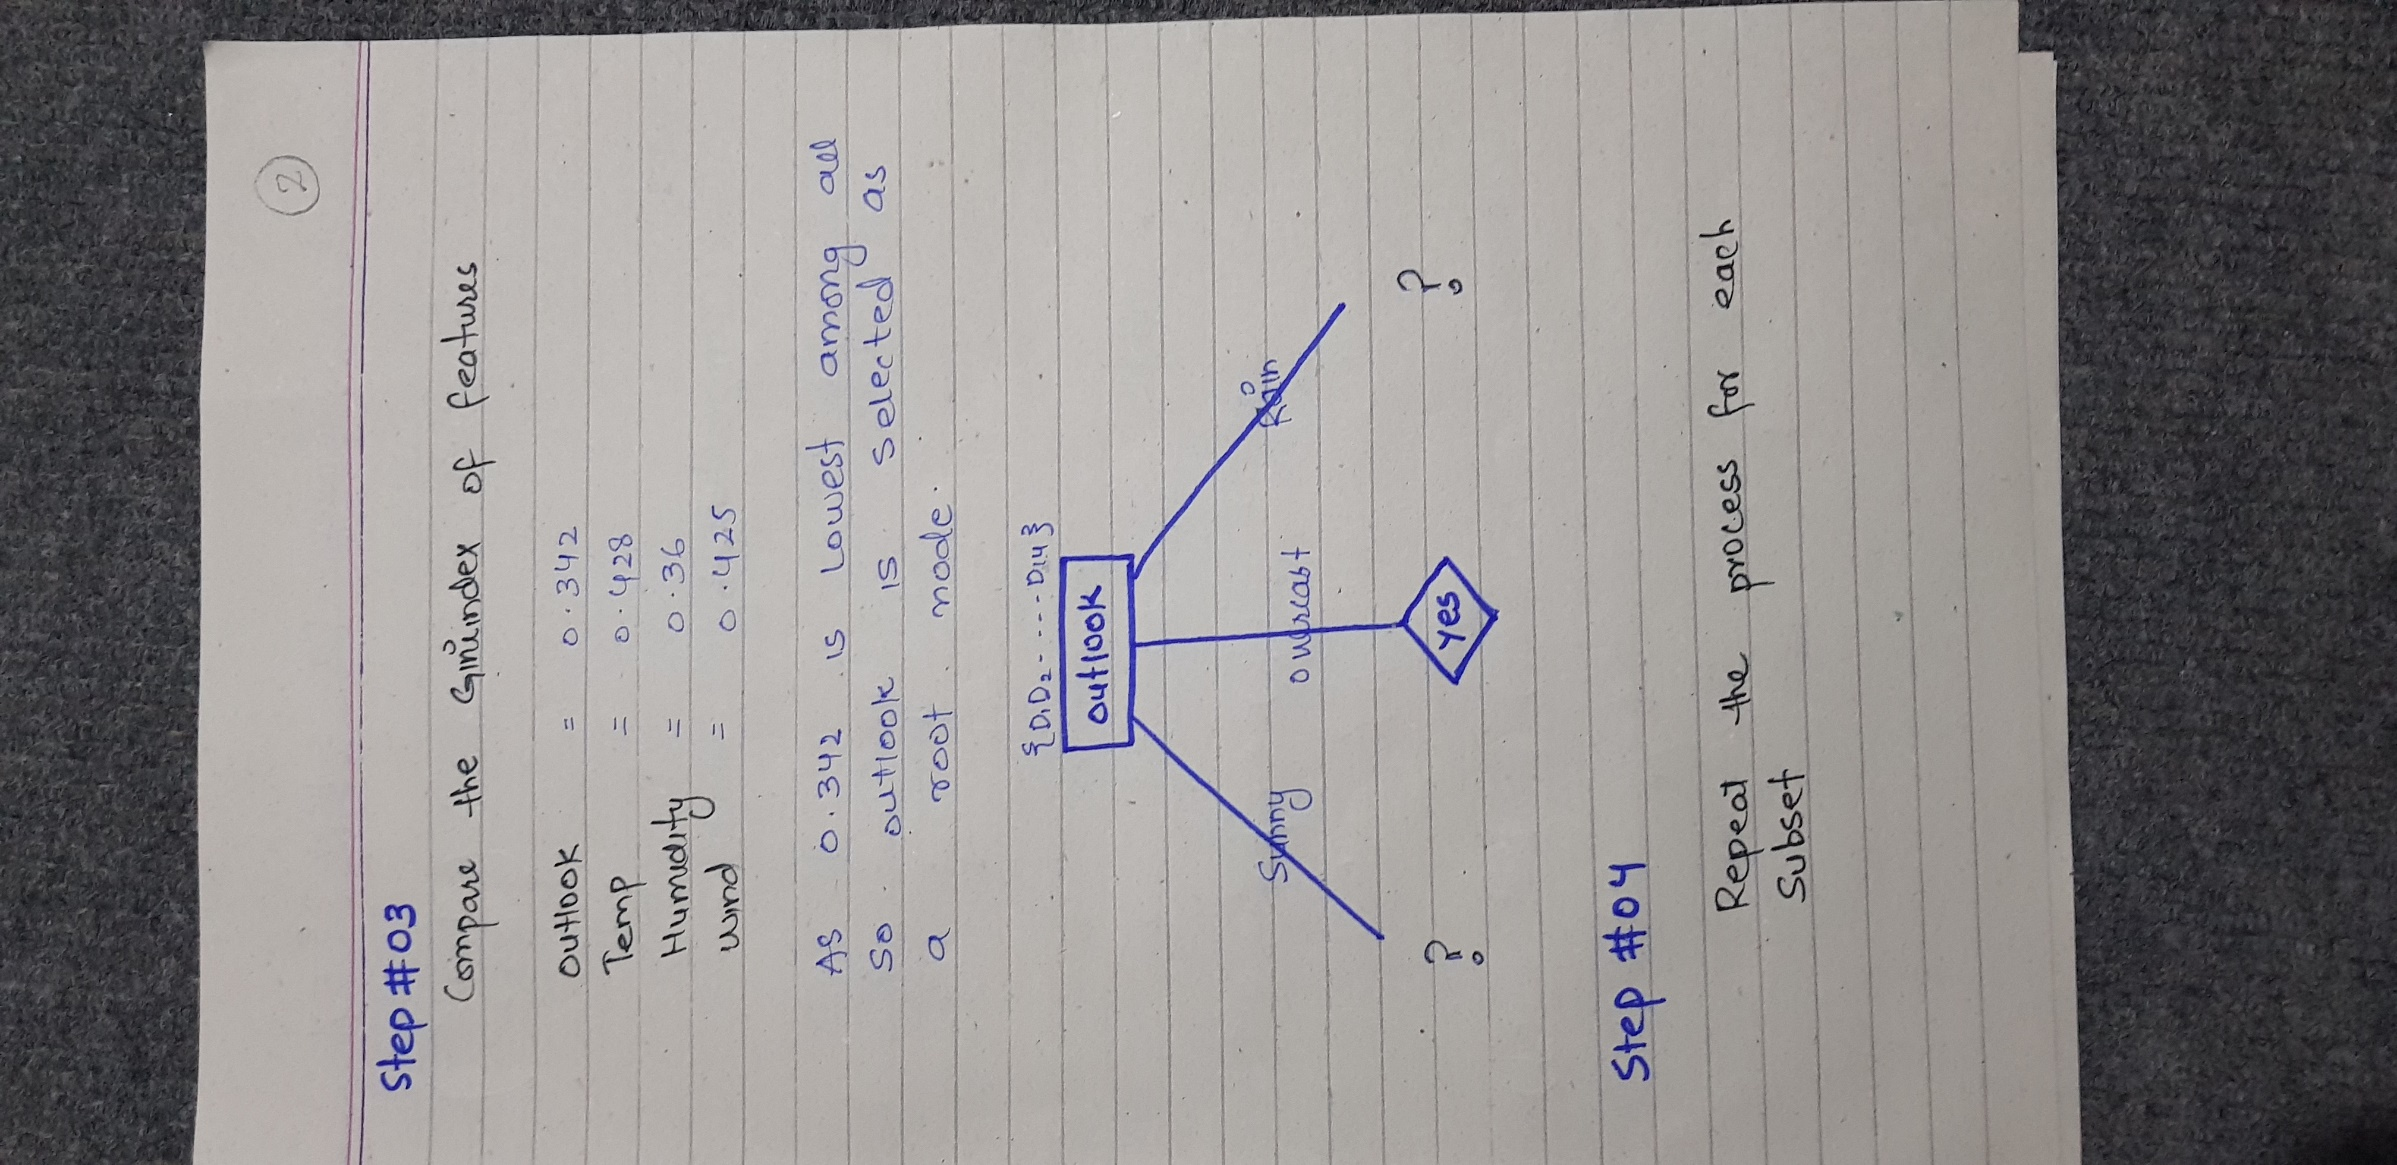 2
Step #03
Compare the Giniindex of features
outlook = 0.342
Temp = 0.428
Humidity = 0.36
wind = 0.425
As 0.342 is Lowest among all
So outlook is selected as
a root node.
{D1D2----D14}
outlook
Sunny overcast Rain
? yes ?
Step #04
Repeat the process for each
Subset